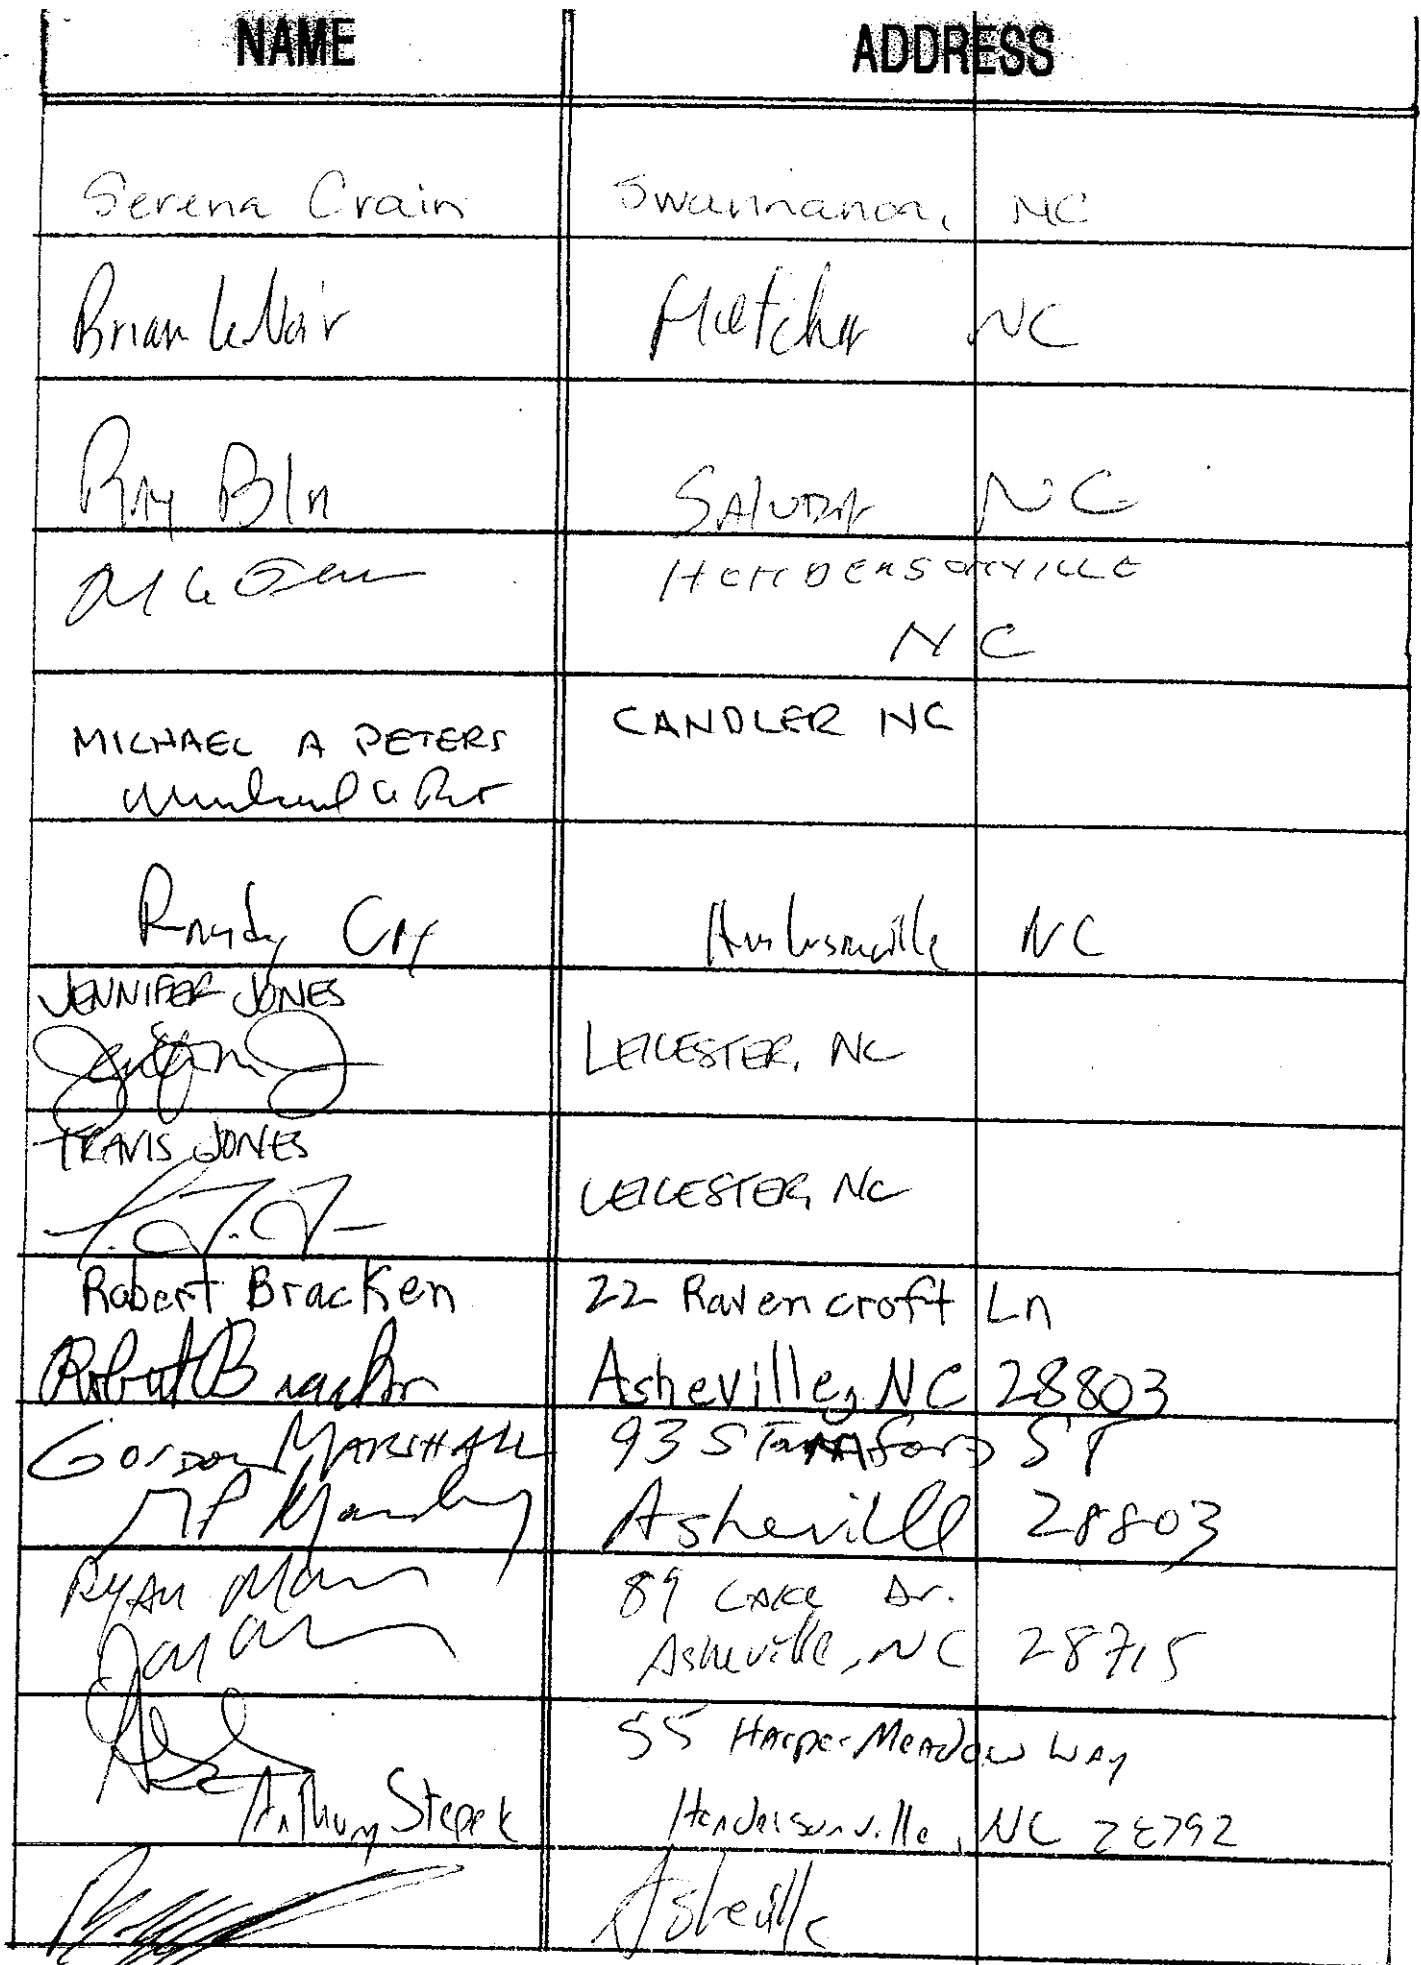 NAME ADDRESS
Serena Crain Swannanoa, NC
Brian LeNoir Fletcher NC
Saluda NC
HENDERSONVILLE
NC
MICHAEL A PETERS CANDLER NC
Randy Hendersonville NC
JENNIFER JONES
LEICESTER, NC
TRAVIS JONES
LEICESTER, NC
Robert Bracken 22 Ravencroft Ln
Robert Bracken Asheville, NC 28803
GORDON MARSHALL 93 ST
Asheville 28803
RYAN 89 LAKE Dr.
Asheville, NC 28715
55 Harper Meadow Way
Anthony Stepek Hendersonville, NC 28792
Asheville